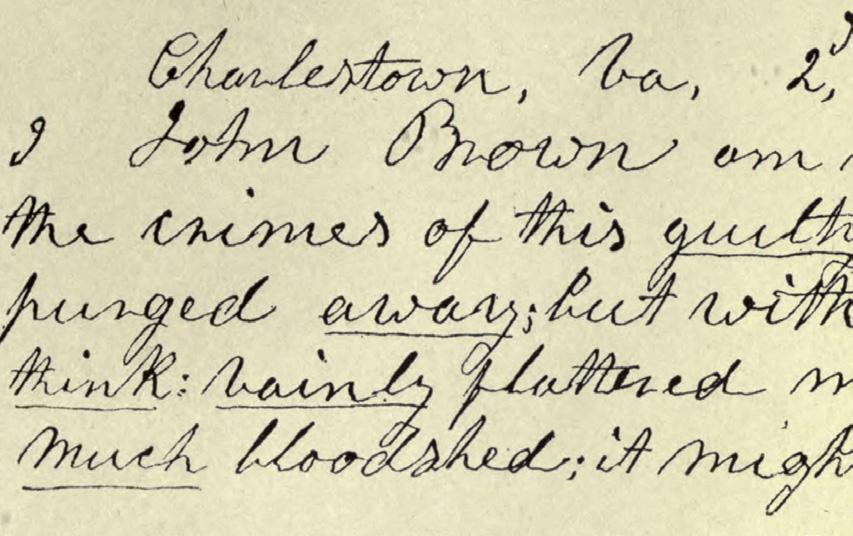 Charlestown, Va, 2,d
I John Brown am
the crimes of this guilty
purged away; but with
think: vainly flattered m
much bloodshed; it migh